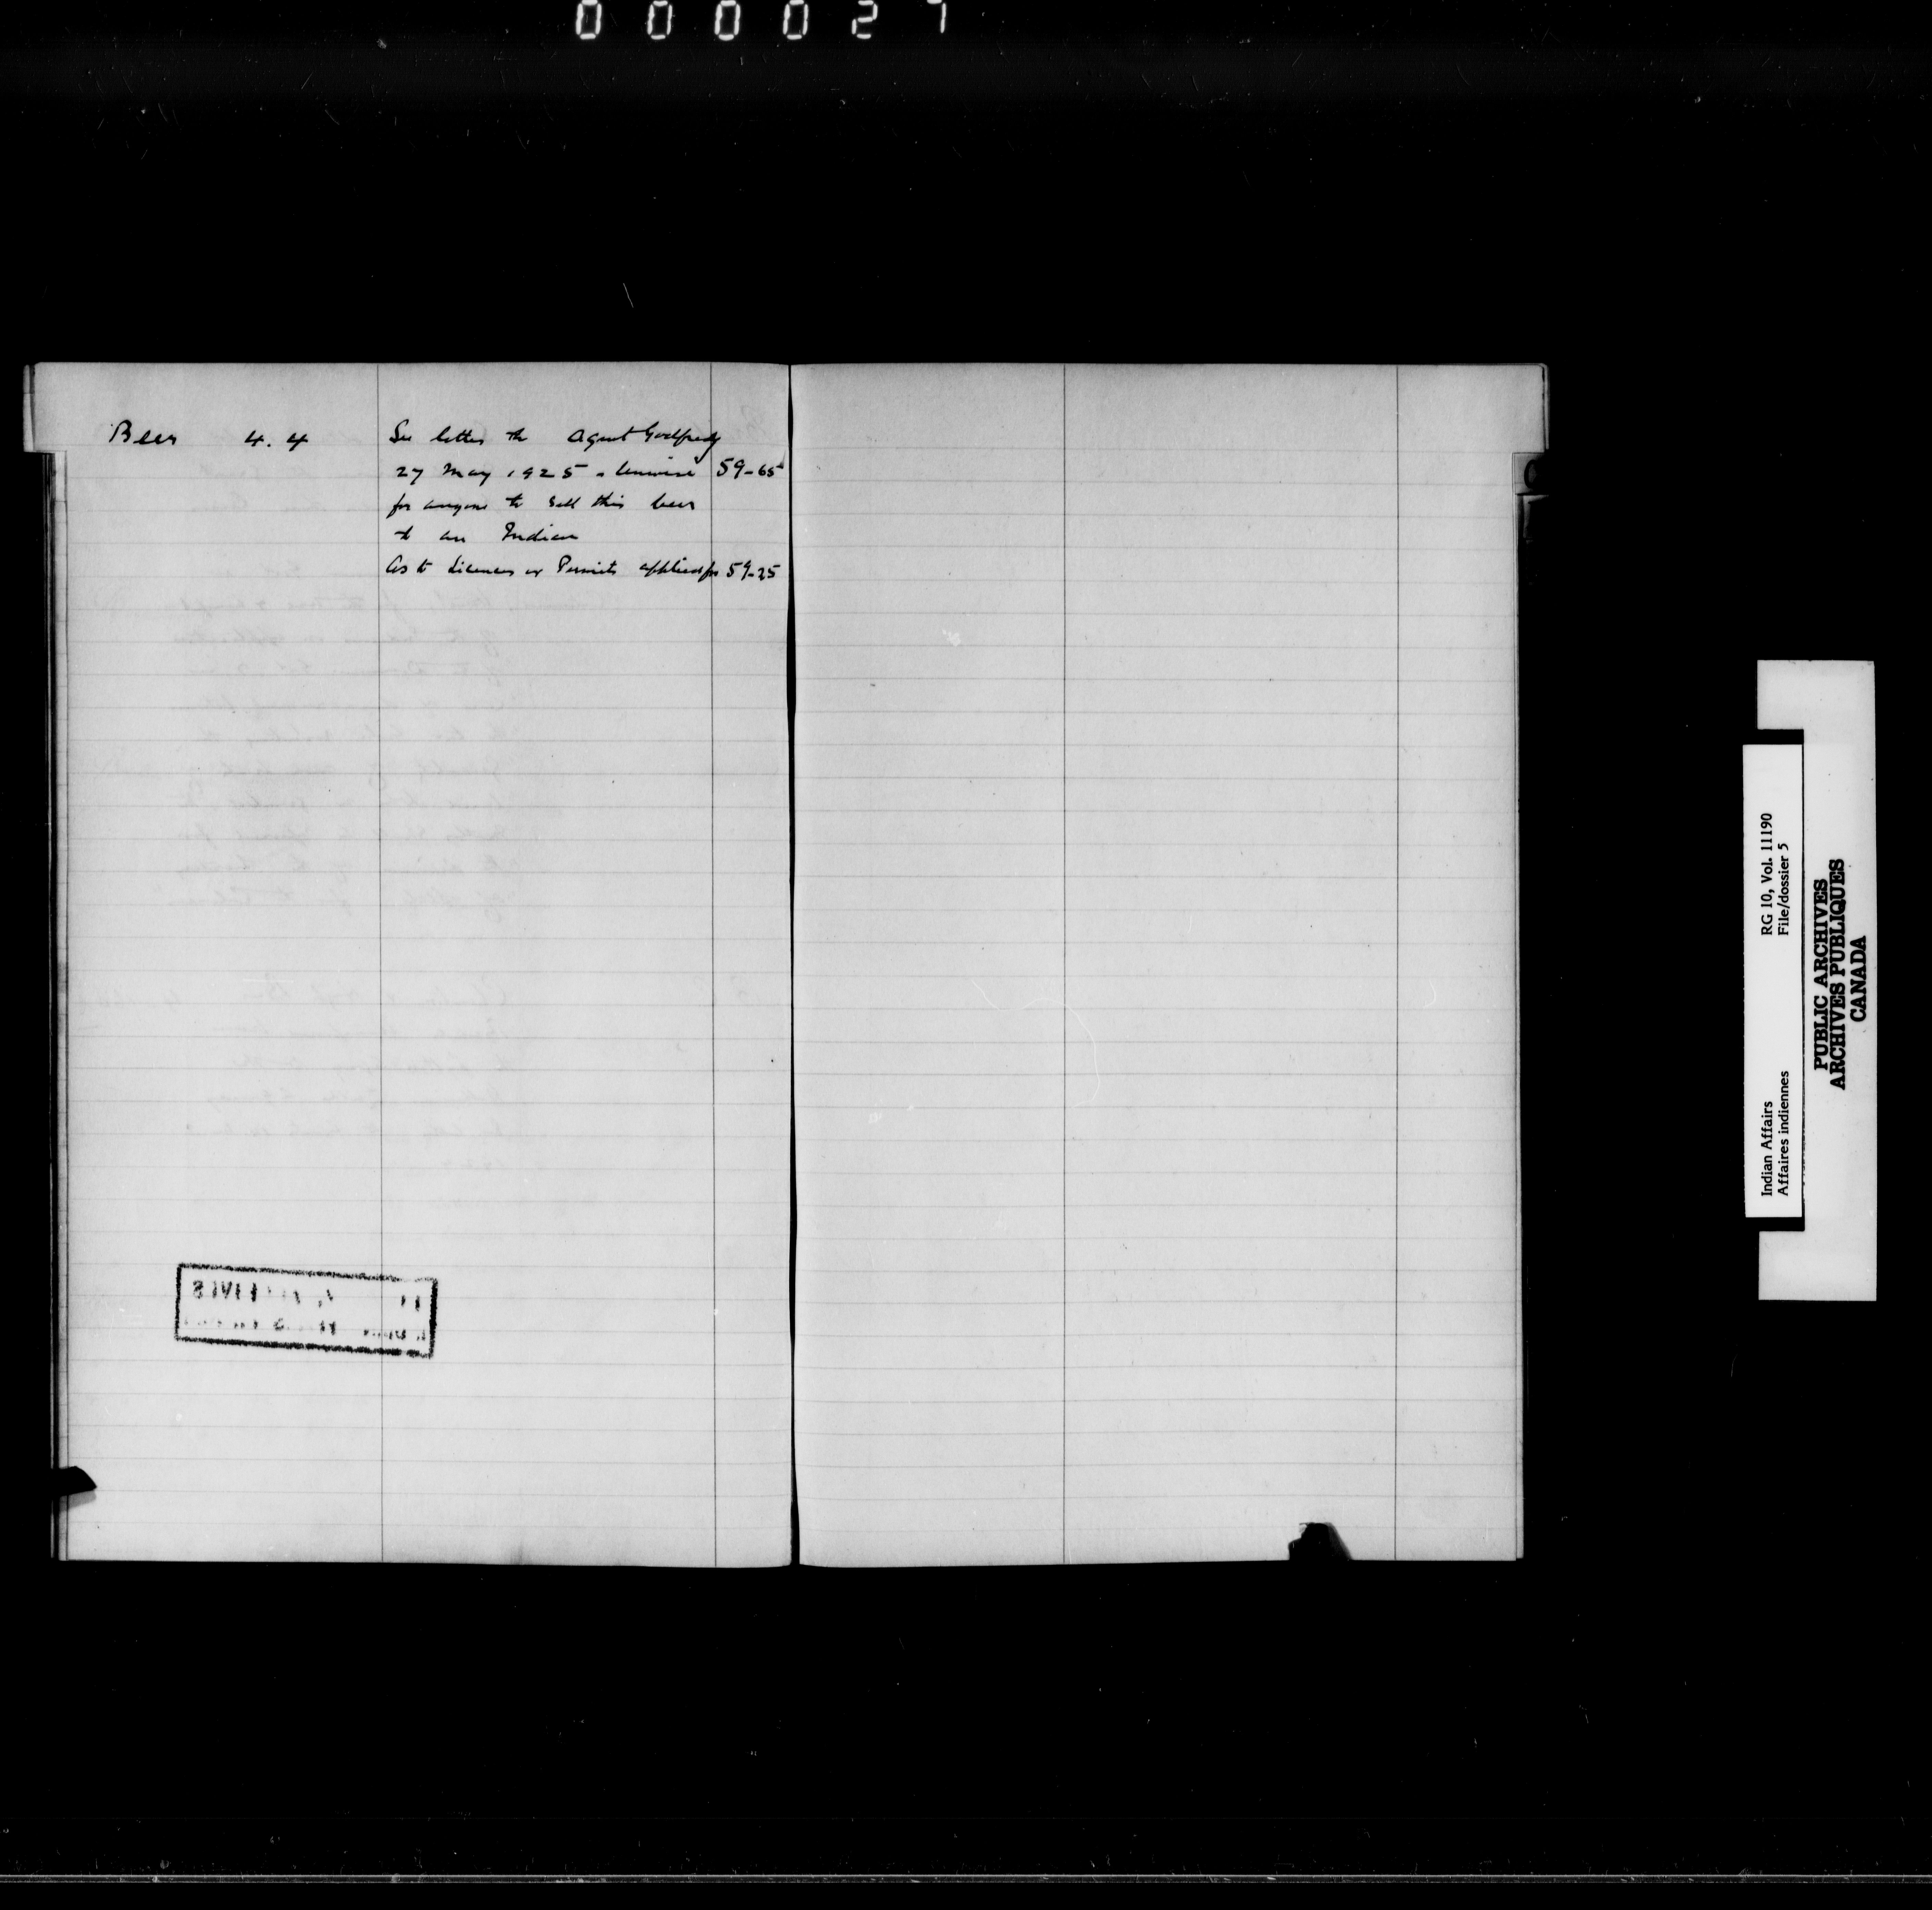 000027
Beer 4.4 See letter to Agent Godfredy
27 May 1925 - Unwise 59-65
for anyone to sell this beer
to an Indian
As to Licences or Permits applied for 59-25
C
RG 10, Vol. 11190
File/dossier 5
Indian Affairs
Affaires indiennes
PUBLIC ARCHIVES
ARCHIVES PUBLIQUES
CANADA